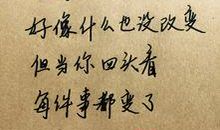 好像什么也没改变
但当你回头看
每件事都变了